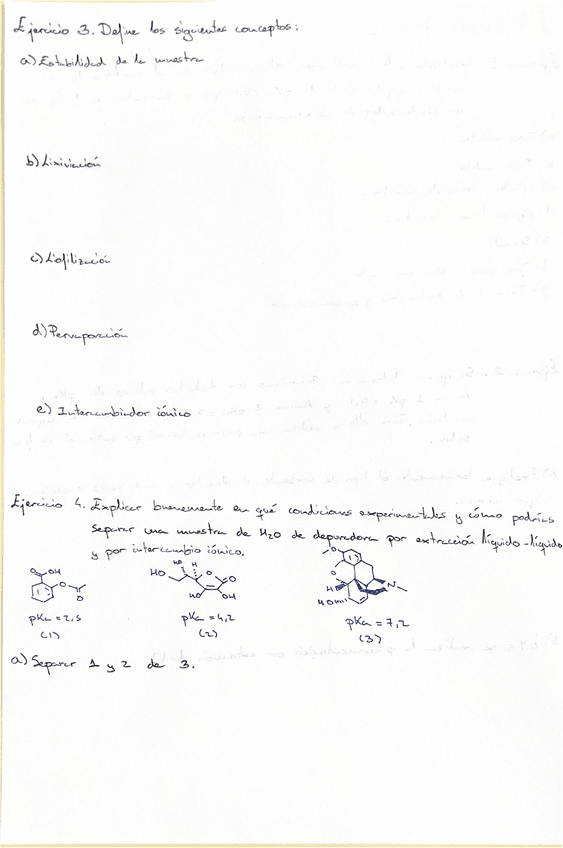 Ejercicio 3. Define los siguientes conceptos:
a) Estabilidad de la muestra
b) Lixiviación
c) Liofilización
d) Pervaporación
e) Intercambiador iónico
Ejercicio 4. Explicar brevemente en qué condiciones experimentales y cómo podrías
separar una muestra de H2O de depuradora por extracción líquido-líquido
y por intercambio iónico.
O OH O O
HO HO H O O HO OH
O O H HO N
pKa = 2,5 pKa = 4,2 pKa = 7,2
(1) (2) (3)
a) Separar 1 y 2 de 3.